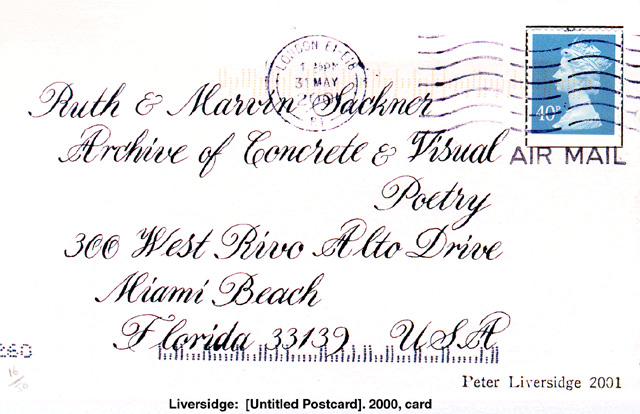 LONDON E1-E18
31 MAY
40P
AIR MAIL
Ruth & Marvin Sackner
Archive of Concrete & Visual
Poetry
300 West Rivo Alto Drive
Miami Beach
Florida 33139 USA
260
16
Peter Liversidge 2001
Liversidge: [Untitled Postcard]. 2000, card